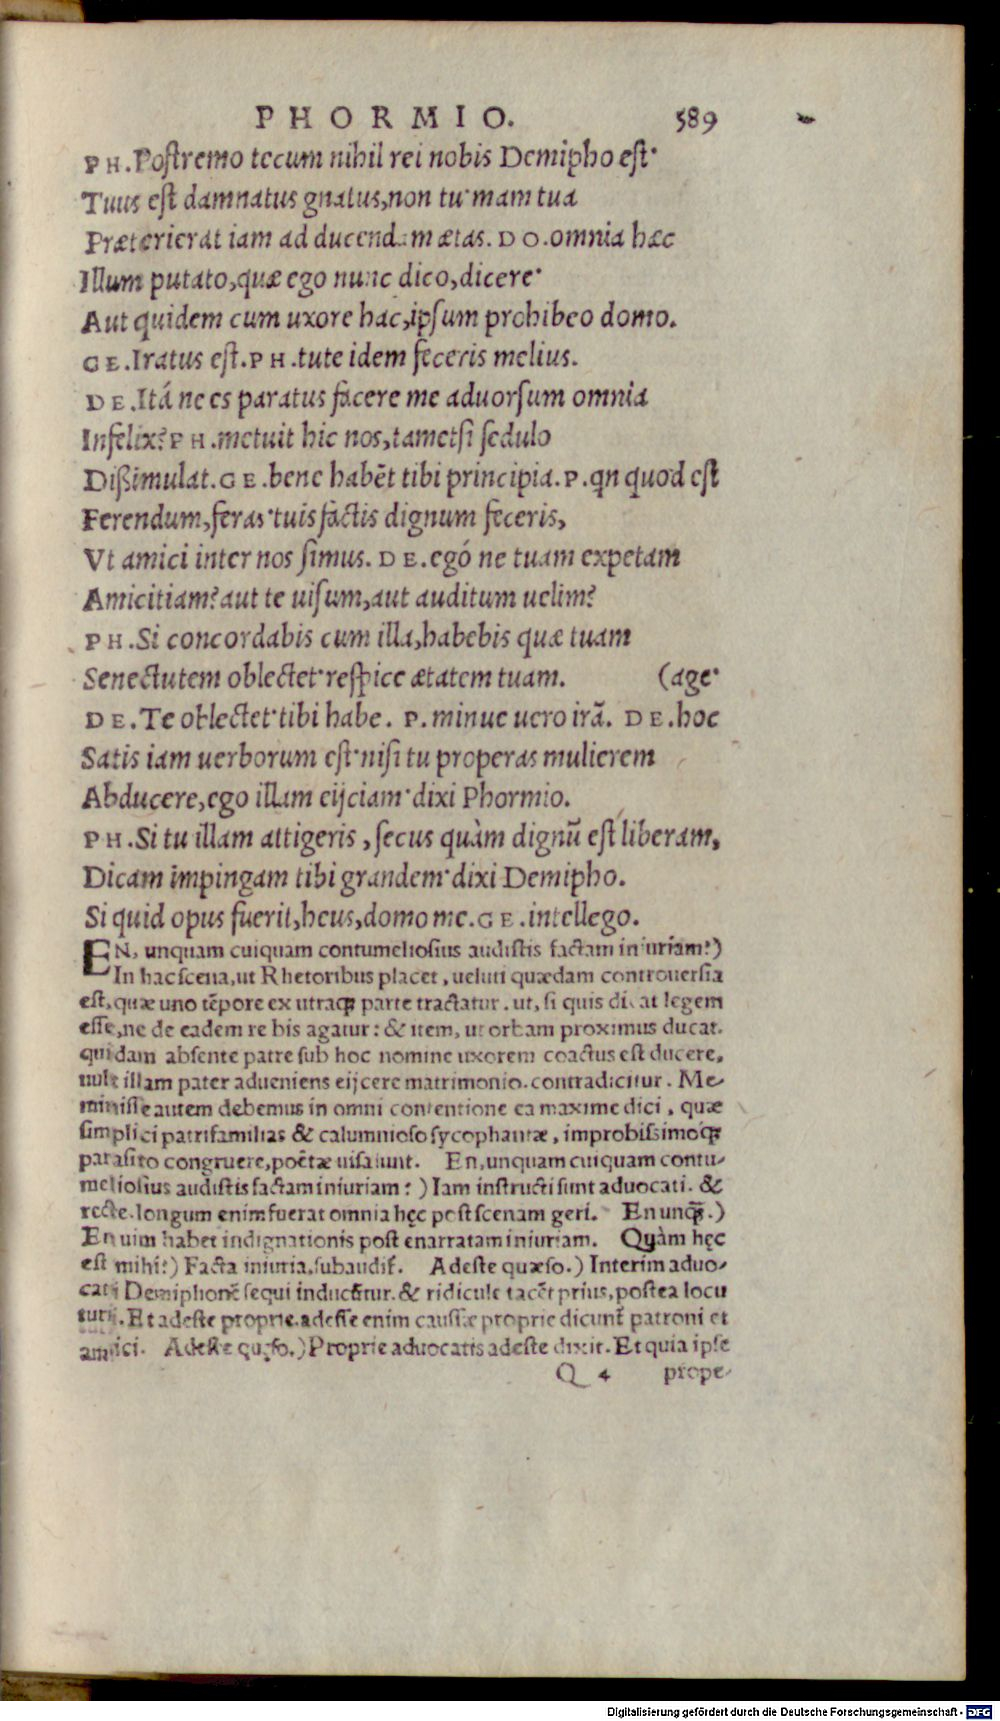 PHORMIO. 589
PH. Postremo tecum nihil rei nobis Demipho est·
Tuus est damnatus gnatus, non tu· nam tua
Præterierat iam ad ducendam ætas. DO. omnia hæc
Illum putato, quæ ego nunc dico, dicere·
Aut quidem cum uxore hac, ipsum prohibeo domo.
GE. Iratus est. PH. tute idem feceris melius.
DE. Itá ne es paratus facere me aduorsum omnia
Infelix? PH. metuit hic nos, tametsi sedulo
Dißimulat. GE. bene habēt tibi principia. P. qn quod est
Ferendum, feras· tuis factis dignum feceris,
Vt amici inter nos simus. DE. egó ne tuam expetam
Amicitiam? aut te uisum, aut auditum uelim?
PH. Si concordabis cum illa, habebis quæ tuam
Senectutem oblectet· respice ætatem tuam. (age·
DE. Te oblectet· tibi habe. P. minue uero irā. DE. hoc
Satis iam uerborum est· nisi tu properas mulierem
Abducere, ego illam eijciam· dixi Phormio.
PH. Si tu illam attigeris, secus quàm dignū est liberam,
Dicam impingam tibi grandem· dixi Demipho.
Si quid opus fuerit, heus, domo me. GE. intellego.
EN, unquam cuiquam contumeliosius audistis factam iniuriam?)
In hac scena, ut Rhetoribus placet, ueluti quædam controuersia
est, quæ uno tēpore ex utraqꝫ parte tractatur. ut, si quis dicat legem
esse, ne de eadem re bis agatur: & item, ut orbam proximus ducat.
quidam absente patre sub hoc nomine uxorem coactus est ducere,
uult illam pater adueniens eijcere matrimonio. contradicitur. Me-
minisse autem debemus in omni contentione ea maxime dici, quæ
simplici patrifamilias & calumnioso sycophantæ, improbissimoqꝫ
parasito congruere, poëtæ uisa sunt. En, unquam cuiquam contu-
meliosius audistis factam iniuriam?) Iam instructi sunt aduocati. &
recte. longum enim fuerat omnia hęc post scenam geri. En unqꝫ.)
En uim habet indignationis post enarratam iniuriam. Quàm hęc
est mihi?) Facta iniuria, subaudis. Adeste quæso.) Interim aduo-
cati Demiphonē sequi inducūtur. & ridicule tacēt prius, postea locu
turi. Et adeste proprie. adesse enim caussæ proprie dicunt patroni et
amici. Adeste quęso.) Proprie aduocatis adeste dixit. Et quia ipse
Q 4 prope-
Digitalisierung gefördert durch die Deutsche Forschungsgemeinschaft - DFG